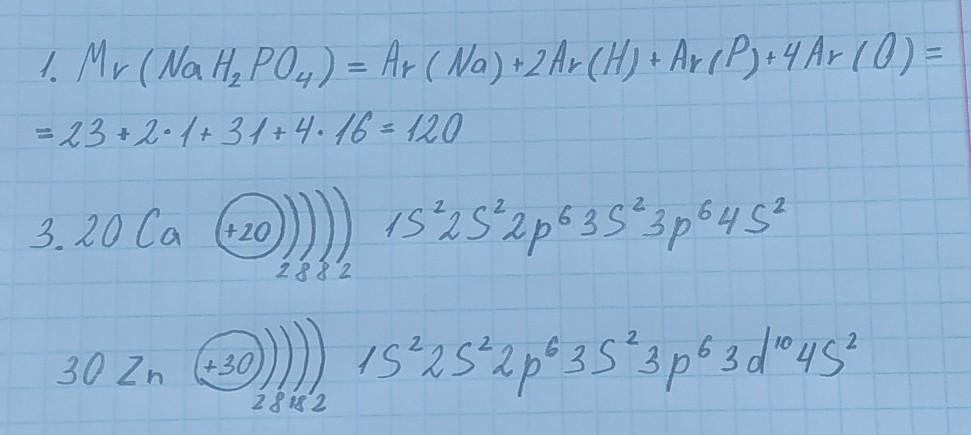 1. Mr (NaH₂PO₄) = Ar (Na) + 2Ar (H) + Ar (P) + 4Ar (O) =
= 23 + 2·1 + 31 + 4·16 = 120
3. 20 Ca +20 1S²2S²2p⁶3S²3p⁶4S²
2 8 8 2
30 Zn +30 1S²2S²2p⁶3S²3p⁶3d¹⁰4S²
2 8 18 2